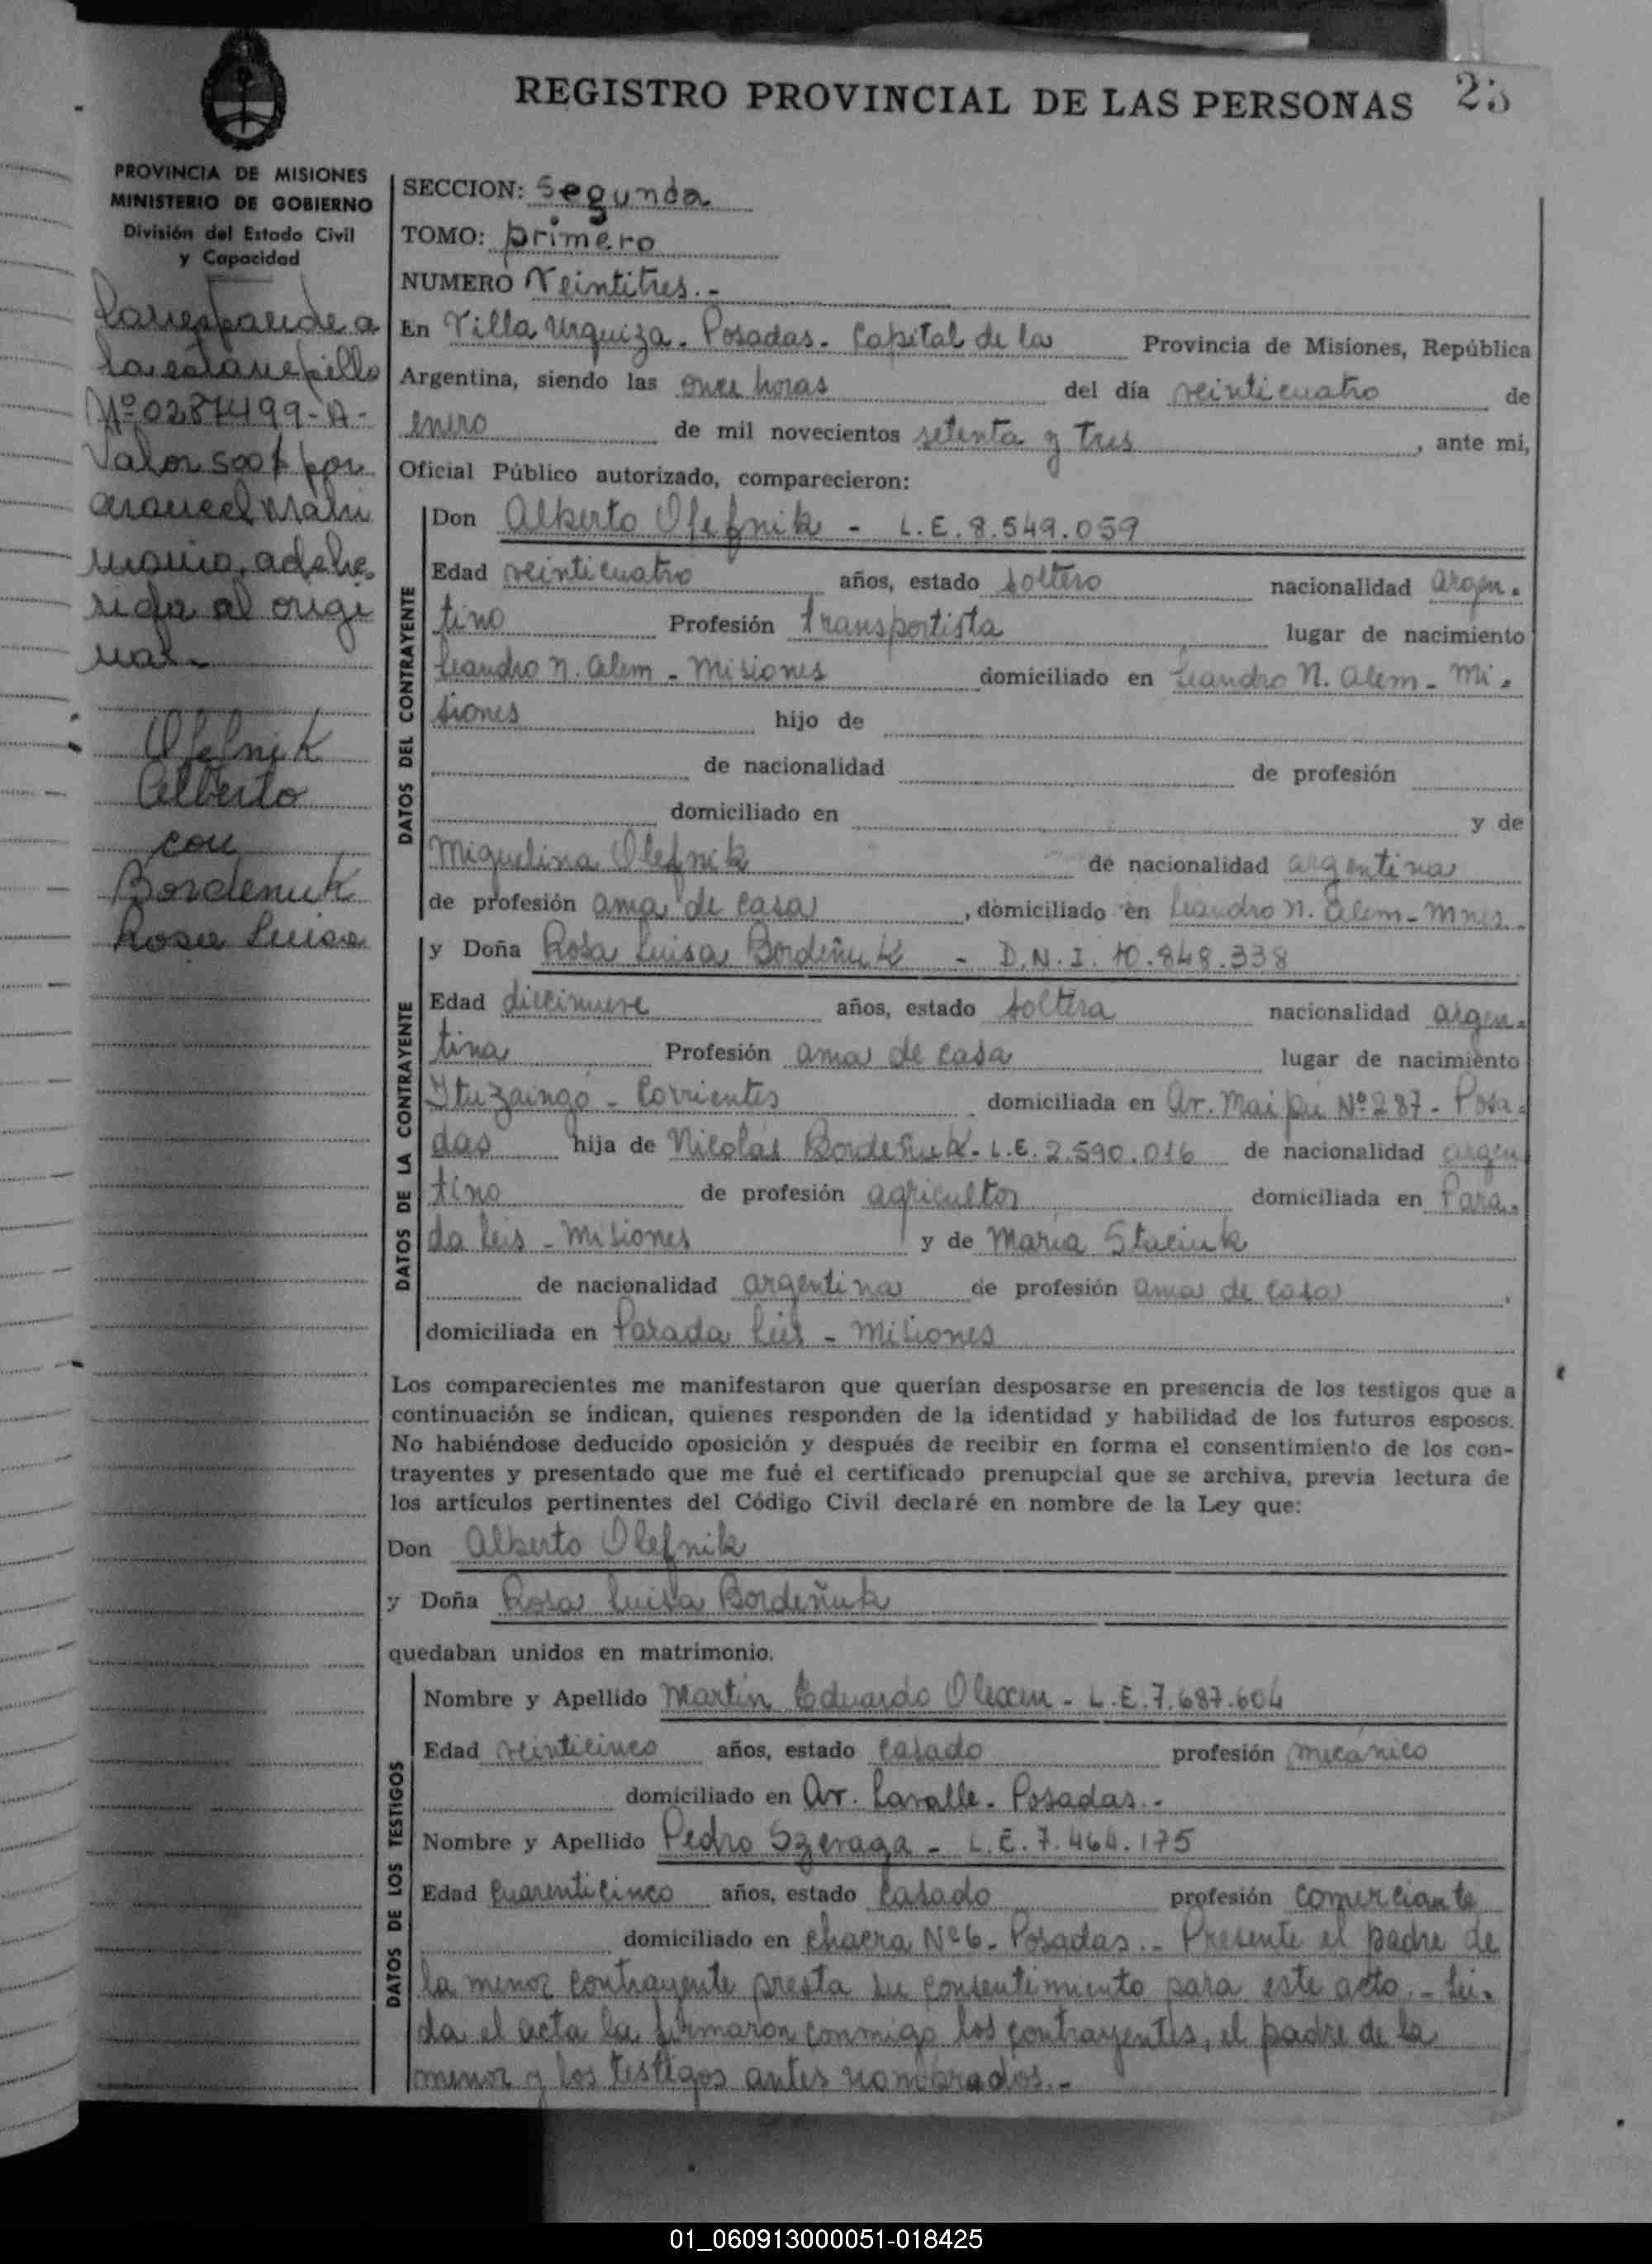 REGISTRO PROVINCIAL DE LAS PERSONAS 23
PROVINCIA DE MISIONES
MINISTERIO DE GOBIERNO
División del Estado Civil
y Capacidad
Corresponde a
la estampilla
Nº 0287499-A-
Valor 500$ por
arancel matri
monio, adhe
rida al origi
nal.-
Olefnik
Alberto
con
Bordenuk
Rosa Luisa
SECCION: Segunda
TOMO: primero
NUMERO Veintitres.-
En Villa Urquiza. Posadas. Capital de la Provincia de Misiones, República
Argentina, siendo las once horas del día veinticuatro de
enero de mil novecientos setenta y tres, ante mi,
Oficial Público autorizado, comparecieron:
DATOS DEL CONTRAYENTE
Don Alberto Olefnik - L.E. 8.549.059
Edad veinticuatro años, estado soltero nacionalidad argen-
tino Profesión transportista lugar de nacimiento
Leandro N. Alem - Misiones domiciliado en Leandro N. Alem - Mi-
siones hijo de
de nacionalidad de profesión
domiciliado en y de
Miguelina Olefnik de nacionalidad argentina
de profesión ama de casa, domiciliado en Leandro N. Alem - Mnes.
DATOS DE LA CONTRAYENTE
y Doña Rosa Luisa Bordeñuk - D.N.I. 10.848.338
Edad diecinueve años, estado soltera nacionalidad argen-
tina Profesión ama de casa lugar de nacimiento
Ituzaingó - Corrientes domiciliada en Av. Maipú Nº 287 - Posa-
das hija de Nicolás Bordeñuk. L.E. 2.590.016 de nacionalidad argen
tino de profesión agricultor domiciliada en Para-
da Leis - Misiones y de María Staciuk
de nacionalidad argentina de profesión ama de casa,
domiciliada en Parada Leis - Misiones
Los comparecientes me manifestaron que querían desposarse en presencia de los testigos que a
continuación se indican, quienes responden de la identidad y habilidad de los futuros esposos.
No habiéndose deducido oposición y después de recibir en forma el consentimiento de los con-
trayentes y presentado que me fué el certificado prenupcial que se archiva, previa lectura de
los artículos pertinentes del Código Civil declaré en nombre de la Ley que:
Don Alberto Olefnik
y Doña Rosa Luisa Bordeñuk
quedaban unidos en matrimonio.
DATOS DE LOS TESTIGOS
Nombre y Apellido Martin Eduardo Olexen - L.E. 7.687.604
Edad veinticinco años, estado casado profesión mecánico
domiciliado en Av. Lavalle. Posadas.-
Nombre y Apellido Pedro Szeraga - L.E. 7.464.175
Edad cuarenticinco años, estado casado profesión comerciante
domiciliado en chacra Nº 6. Posadas.- Presente el padre de
la menor contrayente presta su consentimiento para este acto.- Lei-
da el acta la firmaron conmigo los contrayentes, el padre de la
menor y los testigos antes nombrados.-
01_060913000051-018425